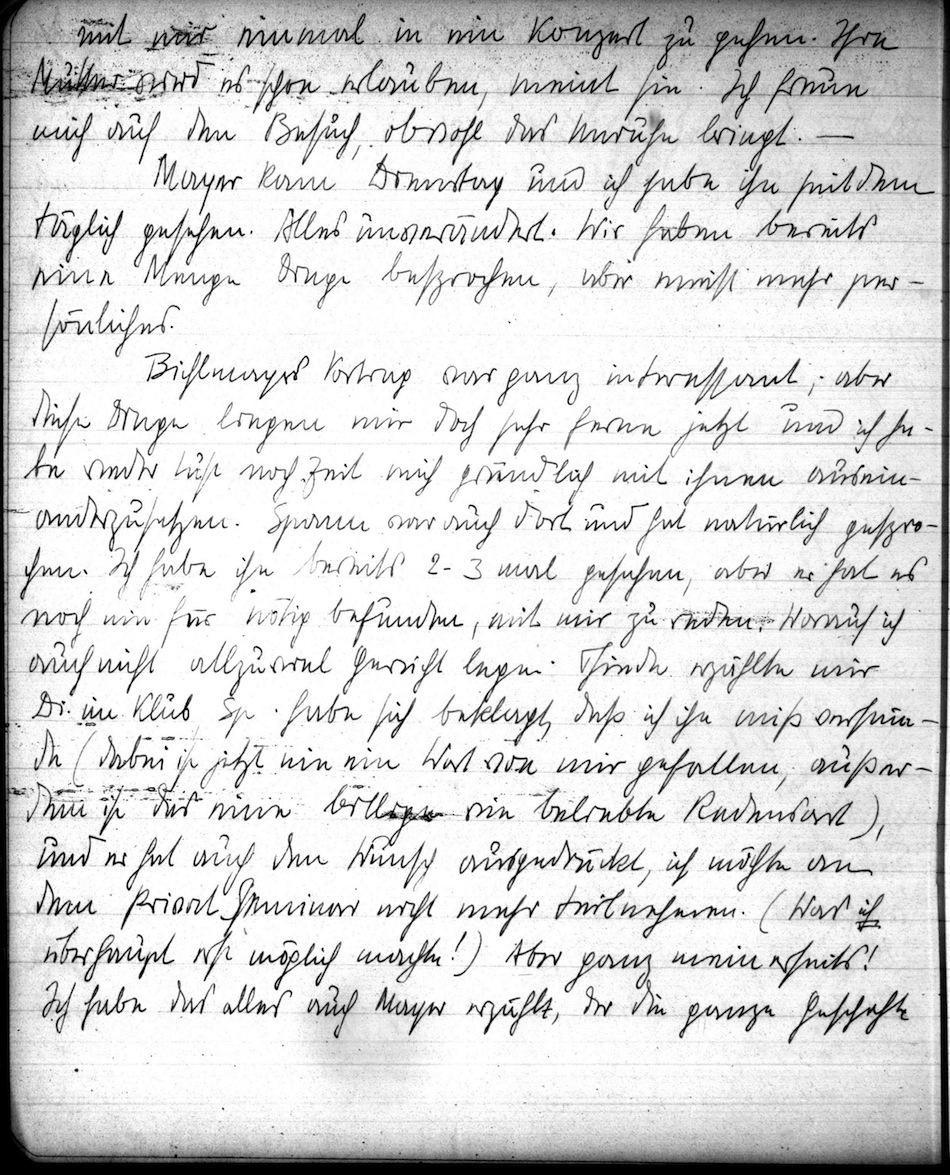 mit mir einmal in ein Konzert zu gehen. Ihre
Mutter wird es schon erlauben, meint sie. Ich freue
mich auf den Besuch, obwohl das Unruhe bringt. —
Mayer kam Dienstag und ich habe ihn seitdem
täglich gesehen. Alles unverändert. Wir haben bereits
eine Menge Dinge besprochen, aber meist mehr per-
sönliches.
Bichlmayers Vortrag war ganz interessant; aber
diese Dinge liegen mir doch sehr ferne jetzt und ich ha-
be weder Lust noch Zeit mich gründlich mit ihnen ausein-
anderzusetzen. Spann war auch dort und hat natürlich gespro-
chen. Ich habe ihn bereits 2-3 mal gesehen, aber er hat es
noch nie für nötig befunden, mit mir zu reden. Worauf ich
auch nicht allzuviel Gewicht lege. Thirde erzählte mir
Di. im Klub, Sp. habe sich beklagt, daß ich ihn miß verstün-
de (dabei ist jetzt nie ein Wort von mir gefallen, außer-
dem ist das eine beliebte Redensart),
und er hat auch den Wunsch ausgedrückt, ich möchte an
dem Privat Seminar nicht mehr teilnehmen. (Was ich
überhaupt erst möglich machte!) Aber ganz meinerseits!
Ich habe das alles auch Mayer erzählt, der die ganze Geschichte